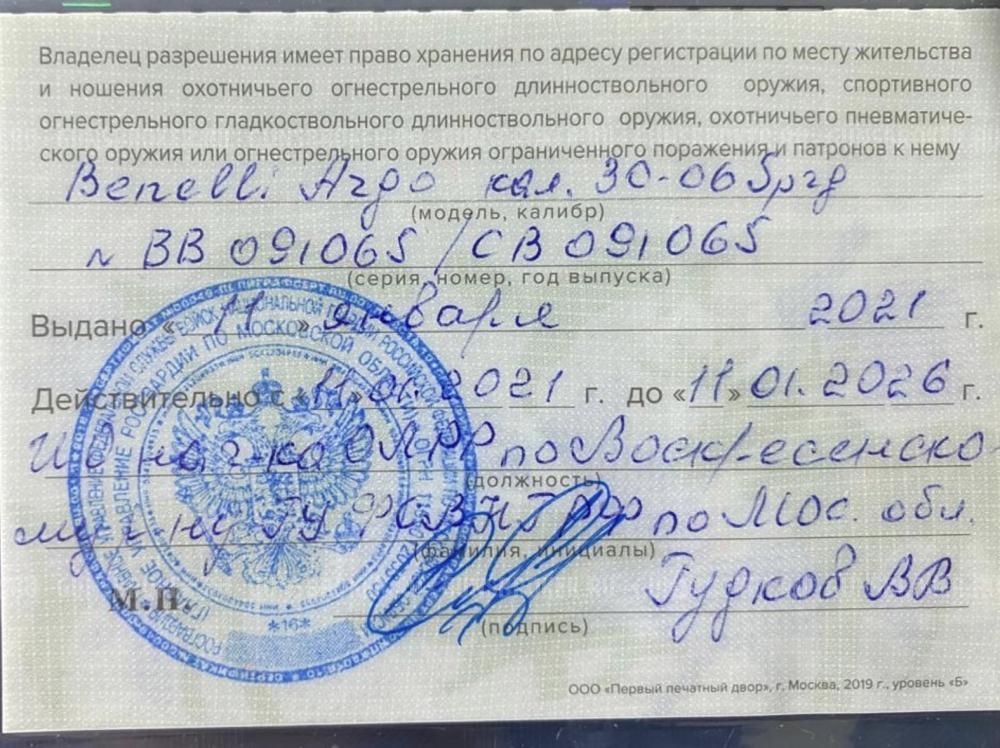 Владелец разрешения имеет право хранения по адресу регистрации по месту жительства
и ношения охотничьего огнестрельного длинноствольного оружия, спортивного
огнестрельного гладкоствольного длинноствольного оружия, охотничьего пневматиче-
ского оружия или огнестрельного оружия ограниченного поражения и патронов к нему
Benelli Argo кал. 30-06 Sprg
(модель, калибр)
N BB 091065 / CB 091065
(серия, номер, год выпуска)
Выдано «11» января 2021 г.
Действительно с «11» 01. 2021 г. до «11» 01. 2026 г.
ОЛРР по Воскресенско-
(должность)
му ГУ ФСВНГ РФ по Мос. обл.
(фамилия, инициалы)
Гудков ВВ
М.П.
(подпись)
*16*
ООО «Первый печатный двор», г. Москва, 2019 г., уровень «Б»